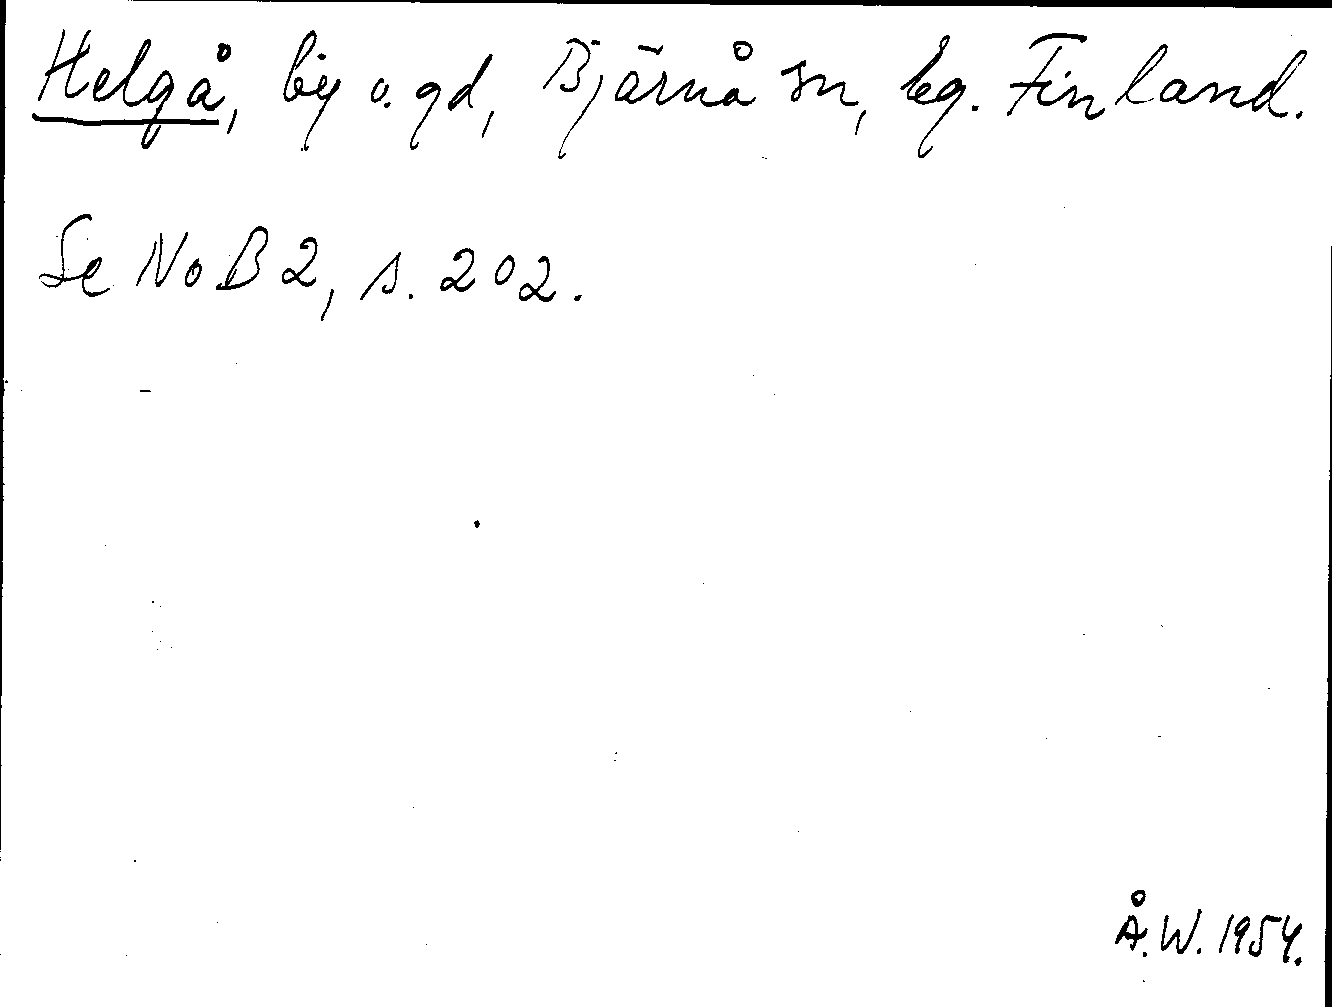 Helgå, by o. gd, Bjärnå sn, Eg. Finland.
Se NoB 2, s. 202.
Å.W. 1954.